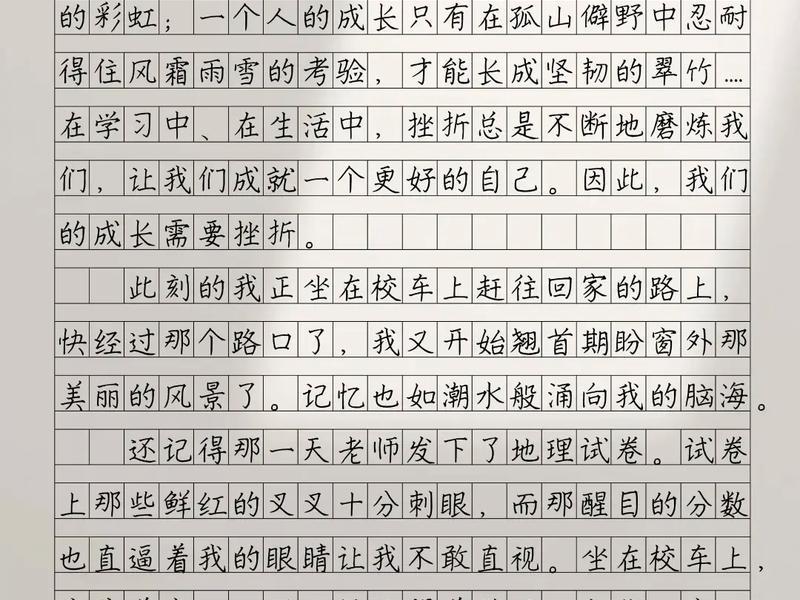 的彩虹；一个人的成长只有在孤山僻野中忍耐
得住风霜雨雪的考验，才能长成坚韧的翠竹....
在学习中、在生活中，挫折总是不断地磨炼我
们，让我们成就一个更好的自己。因此，我们
的成长需要挫折。
此刻的我正坐在校车上赶往回家的路上，
快经过那个路口了，我又开始翘首期盼窗外那
美丽的风景了。记忆也如潮水般涌向我的脑海。
还记得那一天老师发下了地理试卷。试卷
上那些鲜红的叉叉十分刺眼，而那醒目的分数
也直逼着我的眼睛让我不敢直视。坐在校车上，